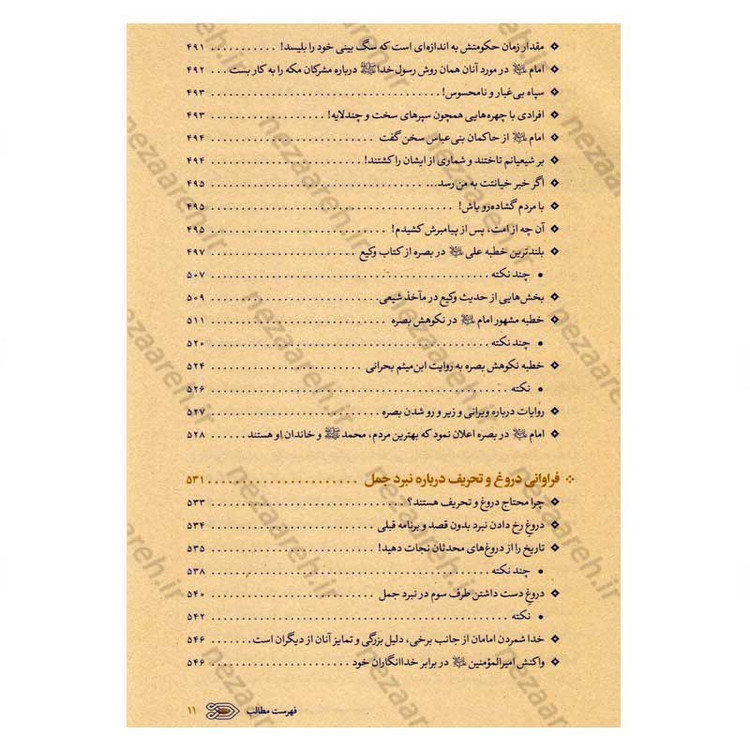 مقدار زمان حکومتش به اندازه‌ای است که سگ بینی خود را بلیسد! ........... ۴۹۱
امام ﷺ در مورد آنان همان روش رسول خدا ﷺ درباره مشرکان مکه را به کار بست... ۴۹۲
سپاه بی‌غبار و نامحسوس! ........... ۴۹۳
افرادی با چهره‌هایی همچون سپرهای سخت و چندلایه! ........... ۴۹۳
امام از حاکمان بنی‌عباس سخن گفت ........... ۴۹۴
بر شیعیانم تاختند و شماری از ایشان را کشتند! ........... ۴۹۴
اگر خبر خیانتت به من رسد... ........... ۴۹۵
با مردم گشاده‌رو باش! ........... ۴۹۵
آن چه از امت، پس از پیامبرش کشیدم! ........... ۴۹۵
بلندترین خطبه علی در بصره از کتاب وکیع ........... ۴۹۷
• چند نکته ........... ۵۰۷
بخش‌هایی از حدیث وکیع در مآخذ شیعی ........... ۵۰۹
خطبه مشهور امام در نکوهش بصره ........... ۵۱۱
• چند نکته ........... ۵۲۰
خطبه نکوهش بصره به روایت ابن‌میثم بحرانی ........... ۵۲۴
• نکته ........... ۵۲۶
روایات درباره ویرانی و زیر و رو شدن بصره ........... ۵۲۷
امام در بصره اعلان نمود که بهترین مردم، محمد ﷺ و خاندان او هستند ........... ۵۲۸
فراوانی دروغ و تحریف درباره نبرد جمل ........... ۵۳۱
چرا محتاج دروغ و تحریف هستند؟ ........... ۵۳۳
دروغ رخ دادن نبرد بدون قصد و برنامه قبلی ........... ۵۳۴
تاریخ را از دروغ‌های محدثان نجات دهید! ........... ۵۳۵
• چند نکته ........... ۵۳۸
دروغ دست داشتن طرف سوم در نبرد جمل ........... ۵۴۰
• نکته ........... ۵۴۲
خدا شمردن امامان از جانب برخی، دلیل بزرگی و تمایز آنان از دیگران است ........... ۵۴۶
واکنش امیرالمؤمنین در برابر خداانگاران خود ........... ۵۴۶
فهرست مطالب ۱۱
nezaareh.ir